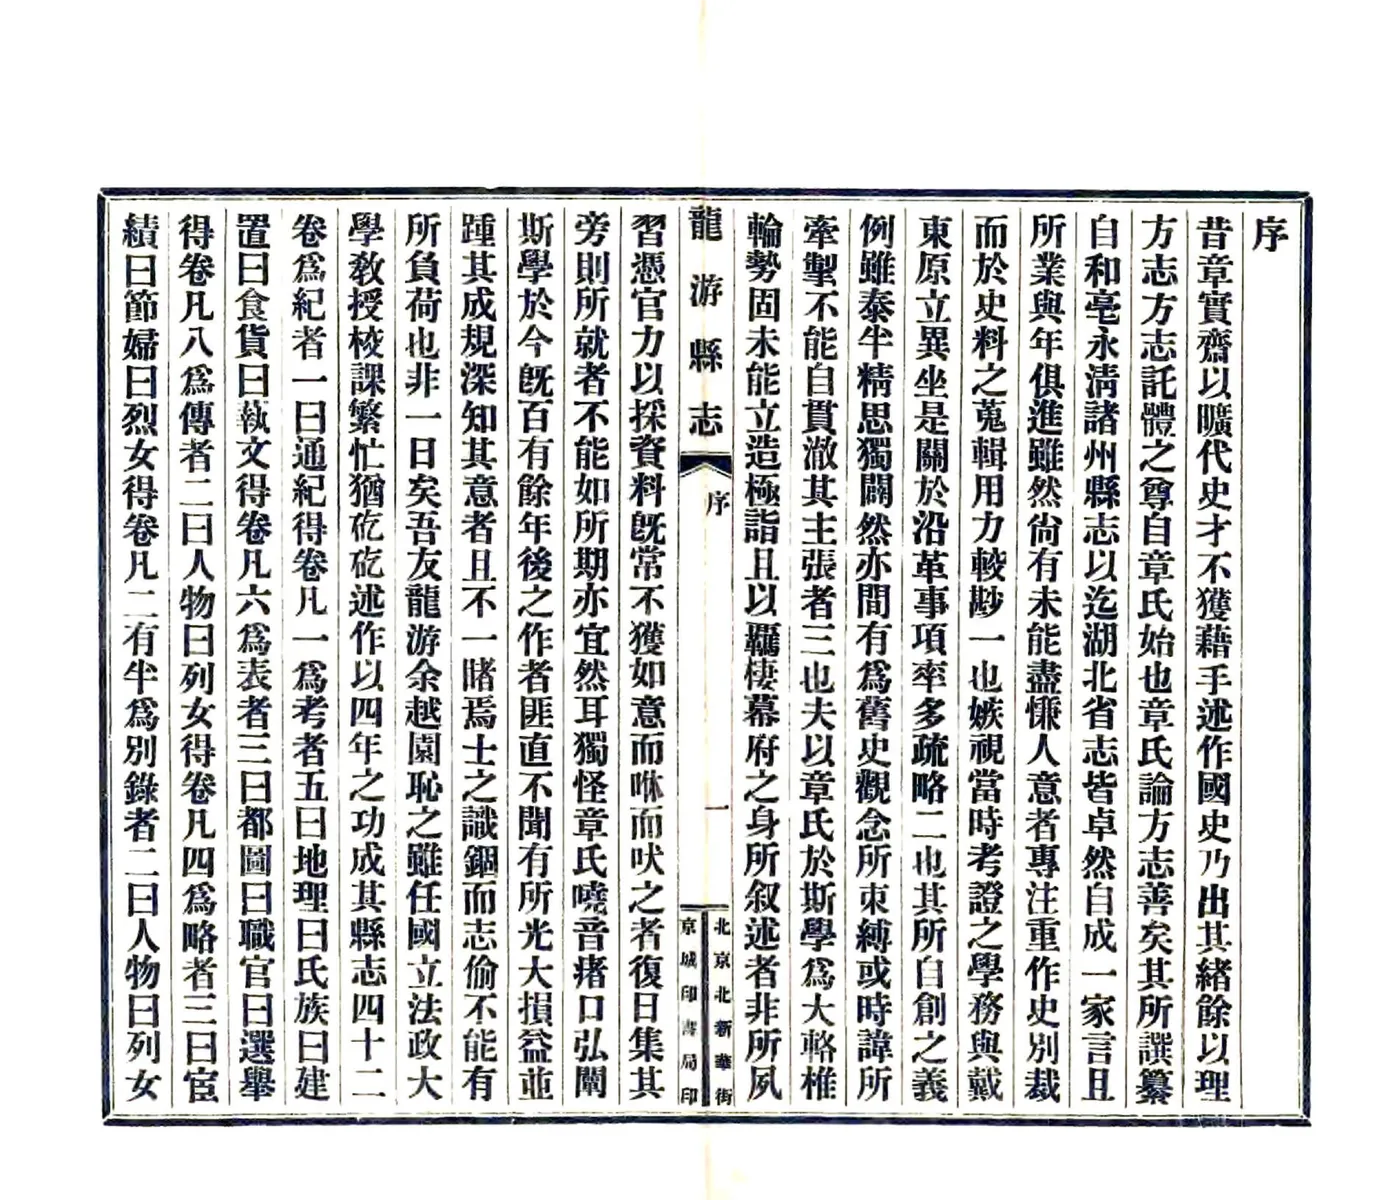 序
昔章實齋以曠代史才不獲藉手述作國史乃出其緒餘以理
方志方志託體之尊自章氏始也章氏論方志善矣其所譔纂
自和亳永淸諸州縣志以迄湖北省志皆卓然自成一家言且
所業與年俱進雖然尙有未能盡慊人意者專注重作史別裁
而於史料之蒐輯用力較尠一也嫉視當時考證之學務與戴
東原立異坐是關於沿革事項率多疏略二也其所自創之義
例雖泰半精思獨闢然亦間有爲舊史觀念所束縛或時諱所
牽掣不能自貫澈其主張者三也夫以章氏於斯學爲大輅椎
輪勢固未能立造極詣且以羈棲幕府之身所叙述者非所夙
龍游縣志
序
一
北京北新華街
京城印書局印
習憑官力以採資料旣常不獲如意而咻而吠之者復日集其
旁則所就者不能如所期亦宜然耳獨怪章氏嘵音瘏口弘闡
斯學於今旣百有餘年後之作者匪直不聞有所光大損益並
踵其成規深知其意者且不一睹焉士之識錮而志偷不能有
所負荷也非一日矣吾友龍游余越園恥之雖任國立法政大
學敎授校課繁忙猶矻矻述作以四年之功成其縣志四十二
卷爲紀者一曰通紀得卷凡一爲考者五曰地理曰氏族曰建
置曰食貨曰蓺文得卷凡六爲表者三曰都圖曰職官曰選舉
得卷凡八爲傳者二曰人物曰列女得卷凡四爲略者三曰宦
績曰節婦曰烈女得卷凡二有半爲別錄者二曰人物曰列女